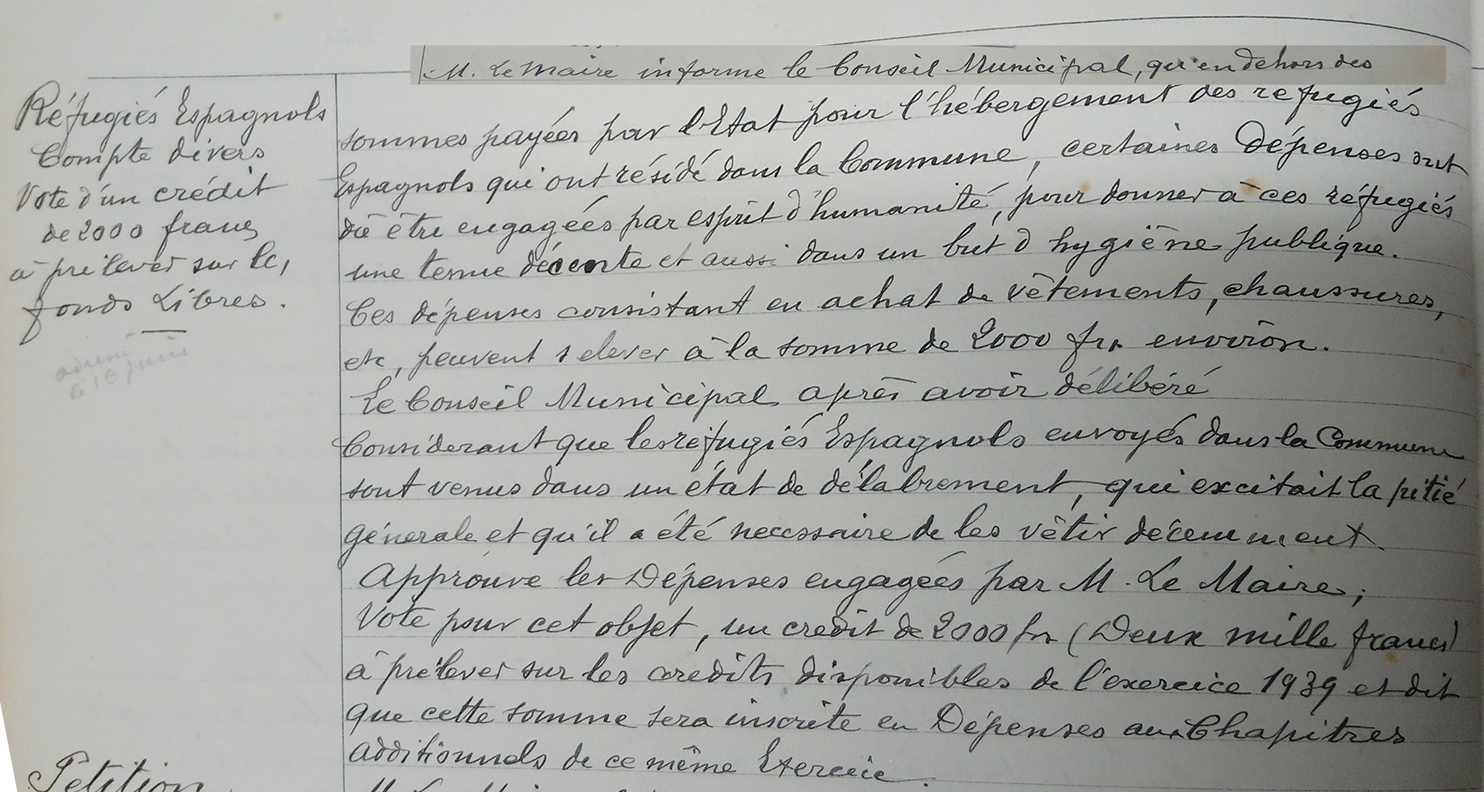 Réfugiés Espagnols
Compte divers
Vote d'un crédit
de 2000 francs
à prélever sur les
fonds Libres.
le 16 juin
M. Le Maire informe le Conseil Municipal, qu'en dehors des
sommes payées par l'Etat pour l'hébergement des refugiés
Espagnols qui ont résidé dans la Commune, certaines dépenses ont
dû être engagées par esprit d'humanité, pour donner à ces réfugiés
une tenue décente et aussi dans un but d'hygiène publique.
Ces dépenses consistant en achat de vêtements, chaussures,
etc, peuvent s'elever à la somme de 2000 frs environ.
Le Conseil Municipal après avoir délibéré
Considerant que les réfugiés Espagnols envoyés dans la Commune
sont venus dans un état de délabrement, qui excitait la pitié
génerale et qu'il a été necessaire de les vêtir décemment.
Approuve les Dépenses engagées par M. Le Maire;
Vote pour cet objet, un credit de 2000 frs (Deux mille francs)
à prélever sur les credits disponibles de l'exercice 1939 et dit
que cette somme sera inscrite en Dépenses aux Chapitres
additionnels de ce même Exercice.
Petition